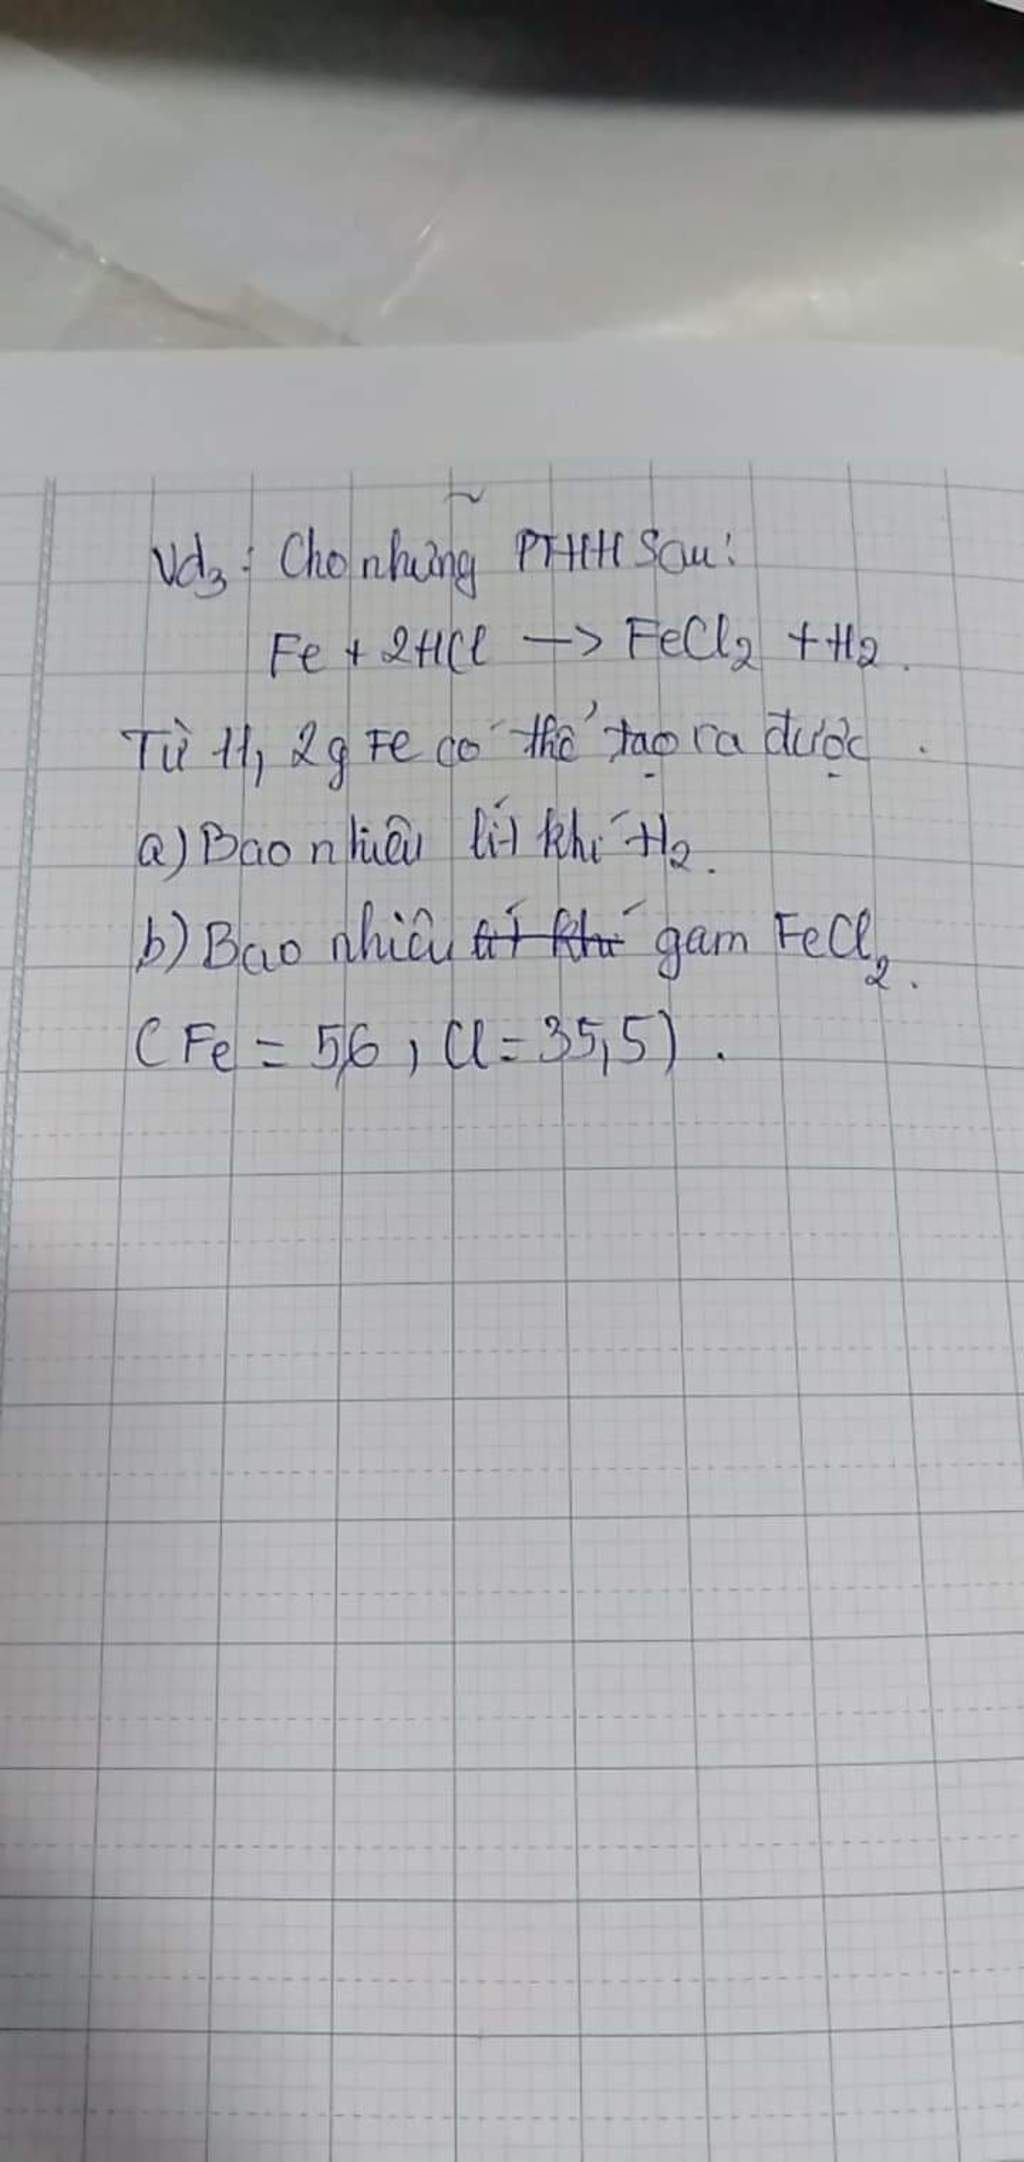 Vd3: Cho những PTHH Sau:
Fe + 2HCl -> FeCl2 + H2.
Từ 11,2g Fe có thể tạo ra được .
a) Bao nhiêu lít khí H2.
b) Bao nhiêu lít khí gam FeCl2.
(Fe = 56, Cl = 35,5).